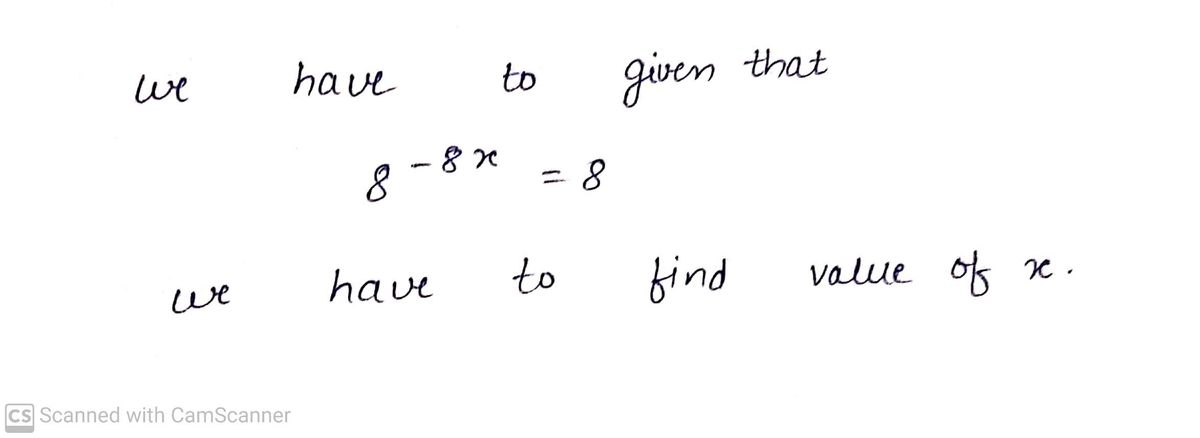 we have to given that
8^{-8x} = 8
we have to find value of x.
CS Scanned with CamScanner